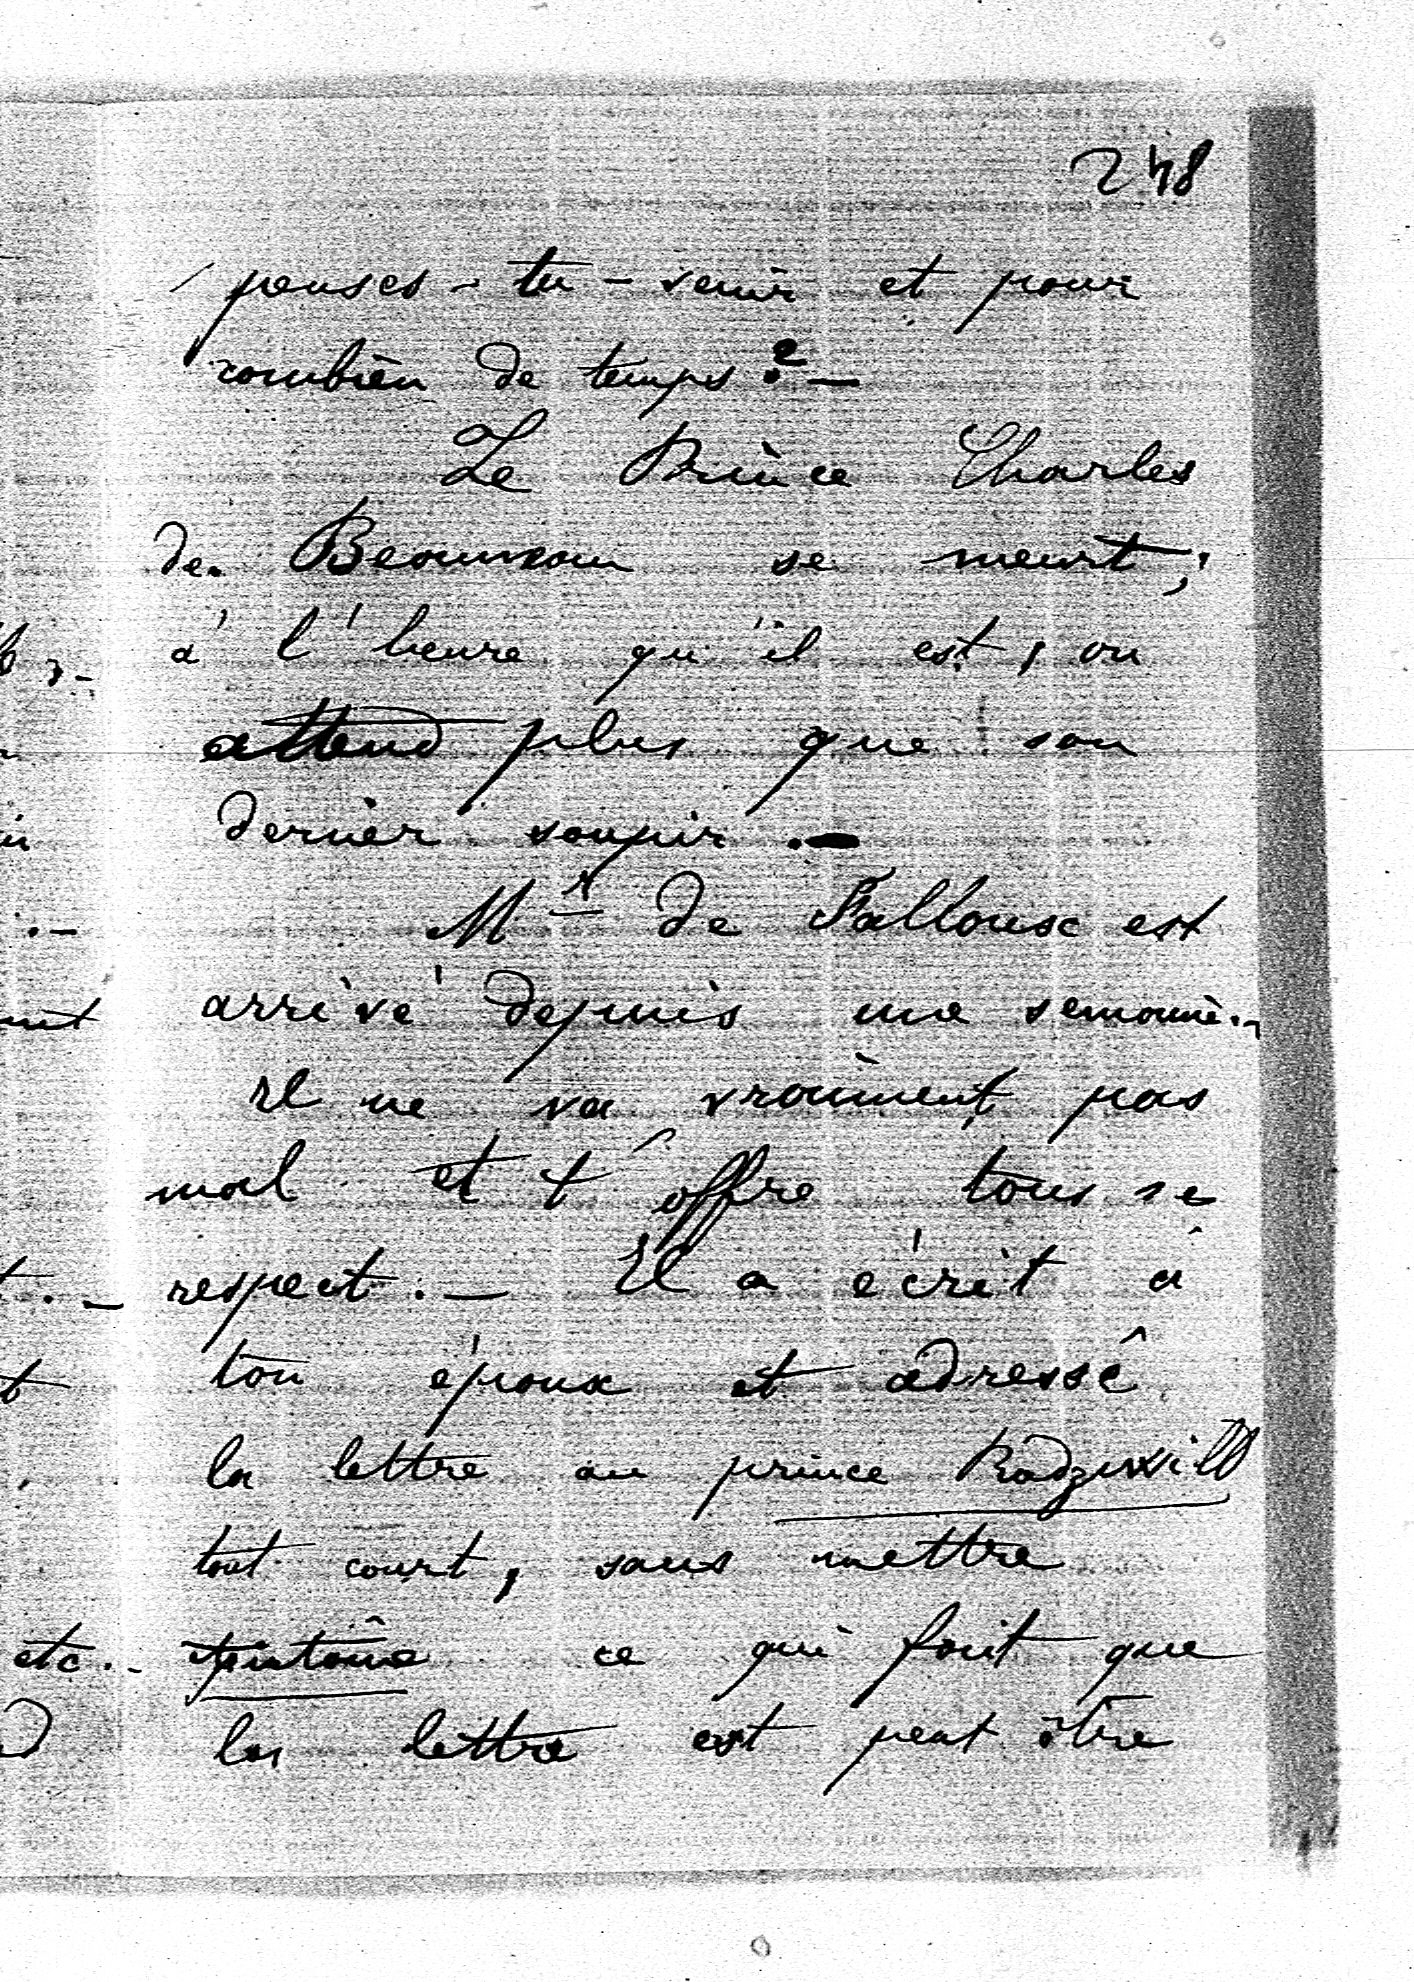 248
penses-tu-venir et pour
combien de temps ? —
Le Prince Charles
de Beauveau se meurt ;
à l'heure qu'il est, on
attend plus que son
dernier soupir. —
Mr de Falloux est
arrivé depuis une semaine. -
Il ne va vraiment pas
mal et t'offre tous se
respect. — Il a écrit à
ton époux et adressé
la lettre au prince Radziwill
tout court, sans mettre
ce qui fait que
la lettre est peut être
etc. -